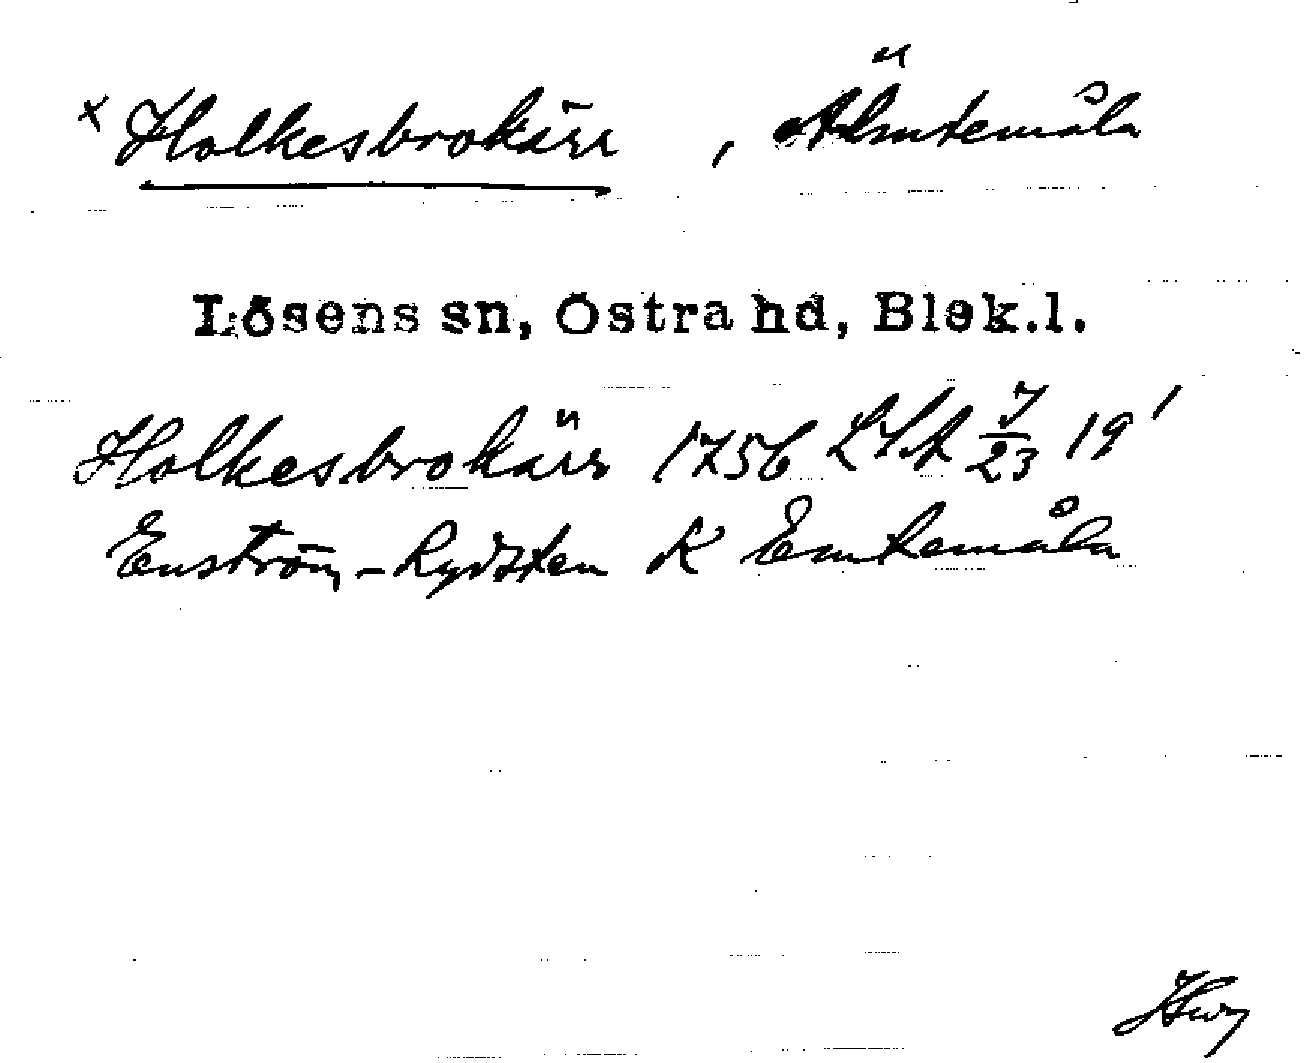 x Holkesbrokärr , Älmtemåla
Lösens sn, Östra hd, Blek.l.
Holkesbrokärr 1756 LSA 7/23 19'
Enström-Rydsten K Emtemåla